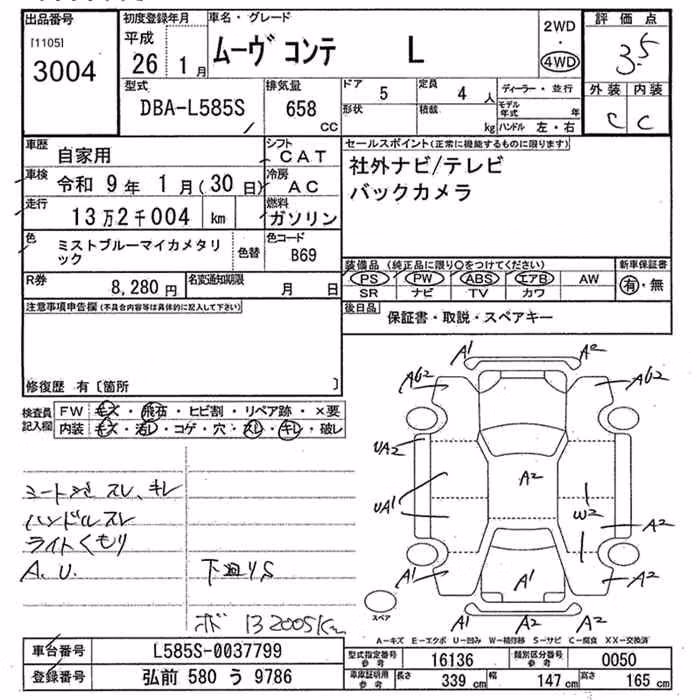 出品番号
[1105]
3004
初度登録年月
平成
26 1月
車名・グレード
ムーヴ コンテ L
2WD
・
4WD
評価点
3.5
外装 内装
C C
型式
DBA-L585S
排気量
658 cc
ドア 5
定員 4 人
形状
積載 kg
ディーラー・並行
モデル年式 年
ハンドル 左・右
車歴
自家用
シフト
CAT
車検
令和 9年 1月(30日)
冷房
AC
走行
13万2千004 km
燃料
ガソリン
色
ミストブルーマイカメタリック
色替
色コード
B69
R券
8,280円
名変通知期限
月 日
セールスポイント(正常に機能するものに限ります)
社外ナビ/テレビ
バックカメラ
装備品(純正品に限り○をつけてください)
PS PW ABS エアB AW
SR ナビ TV カワ
新車保証書
有・無
後日品
保証書・取説・スペアキー
注意事項申告欄(不具合内容等は具体的に記入して下さい)
修復歴 有〔箇所 〕
検査員記入欄
FW キズ・飛石・ヒビ割・リペア跡・×要
内装 キズ・汚レ・コゲ・穴・スレ・キレ・破レ
スレ、キレ
ハンドルスレ
ライトくもり
A.U.
下廻りS
132005Km
A1 A2
AU2 AU2
UA2
A2
UA1
W2
A2
A1 A1 A2
A1 A2 A2
スペア
A―キズ E―エクボ U―凹み W―補修跡 S―サビ C―腐食 XX―交換済
車台番号
L585S-0037799
登録番号
弘前 580 う 9786
型式指定番号
参考
16136
類別区分番号
参考
0050
車庫証明用
参考
長さ 339 cm
幅 147 cm
高さ 165 cm